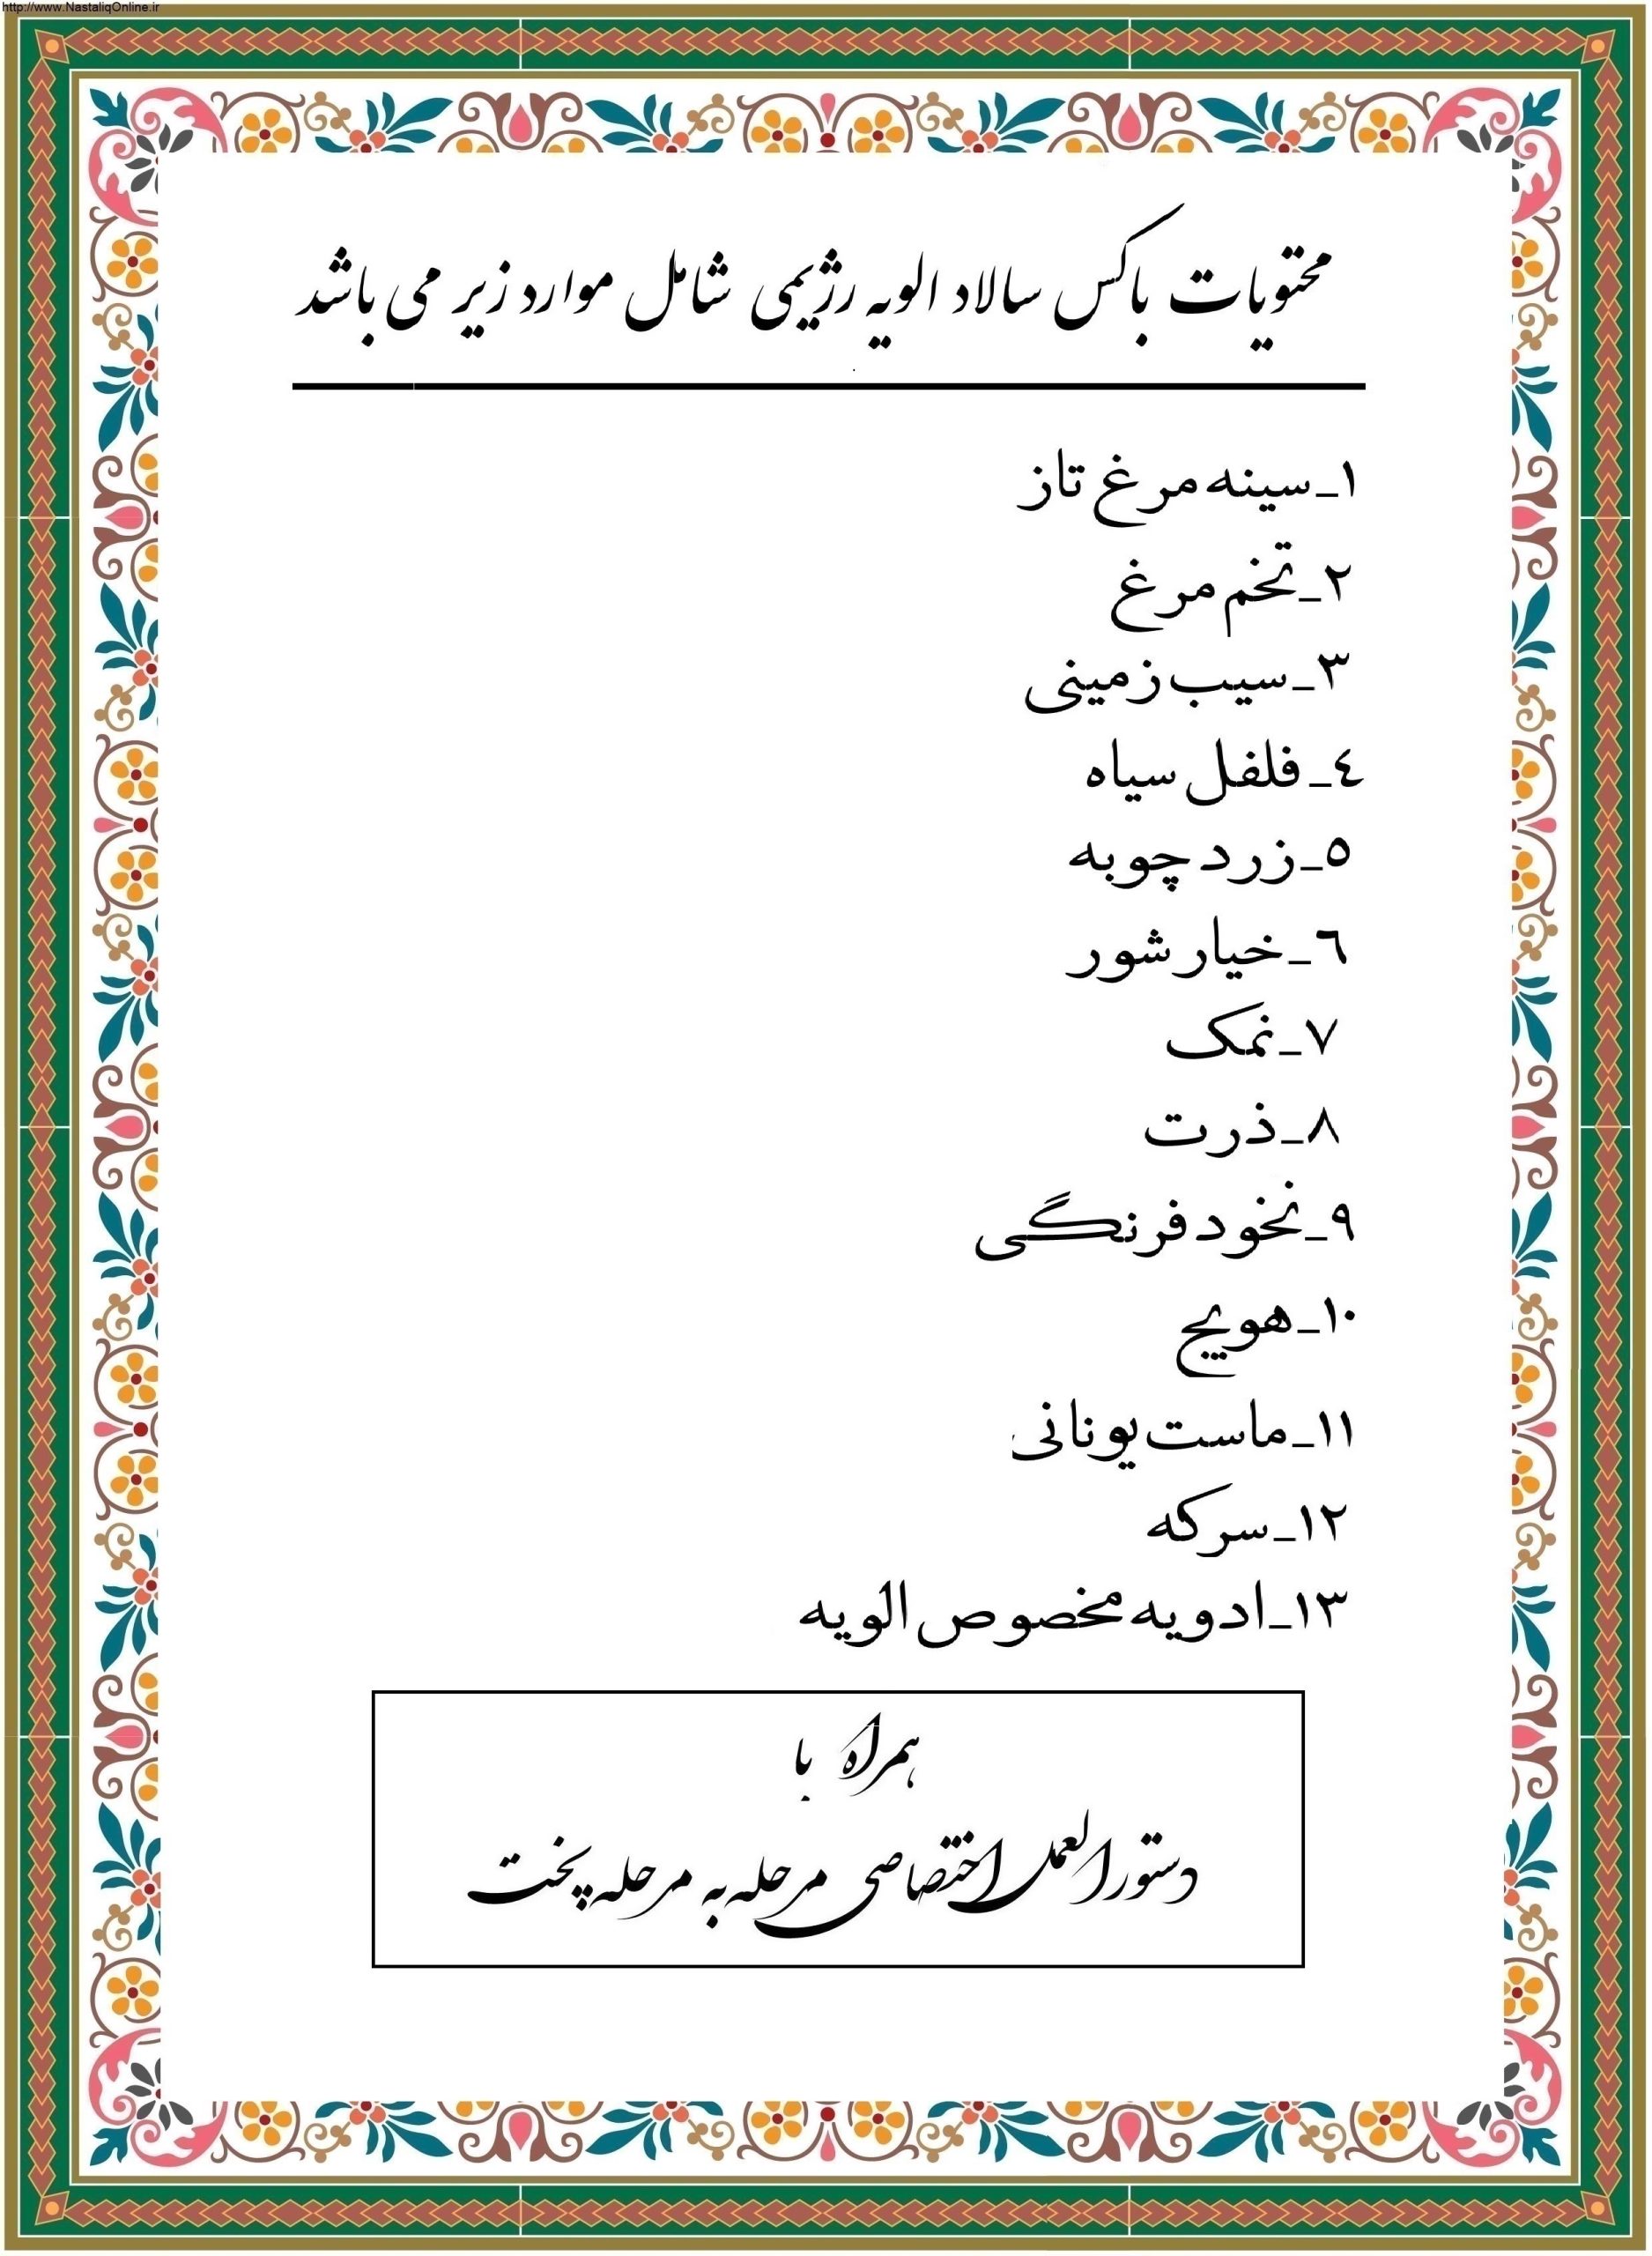 http://www.NastaliqOnline.ir
محتویات باکس سالاد الویه رژیمی شامل موارد زیر می باشد
۱_سینه مرغ تاز
۲_تخم مرغ
۳_سیب زمینی
٤_فلفل سیاه
٥_زردچوبه
٦_خیارشور
۷_نمک
۸_ذرت
۹_نخودفرنگی
۱۰_هویج
۱۱_ماست یونانی
۱۲_سرکه
۱۳_ادویه مخصوص الویه
همراه با
دستورالعمل اختصاصی مرحله به مرحله پخت